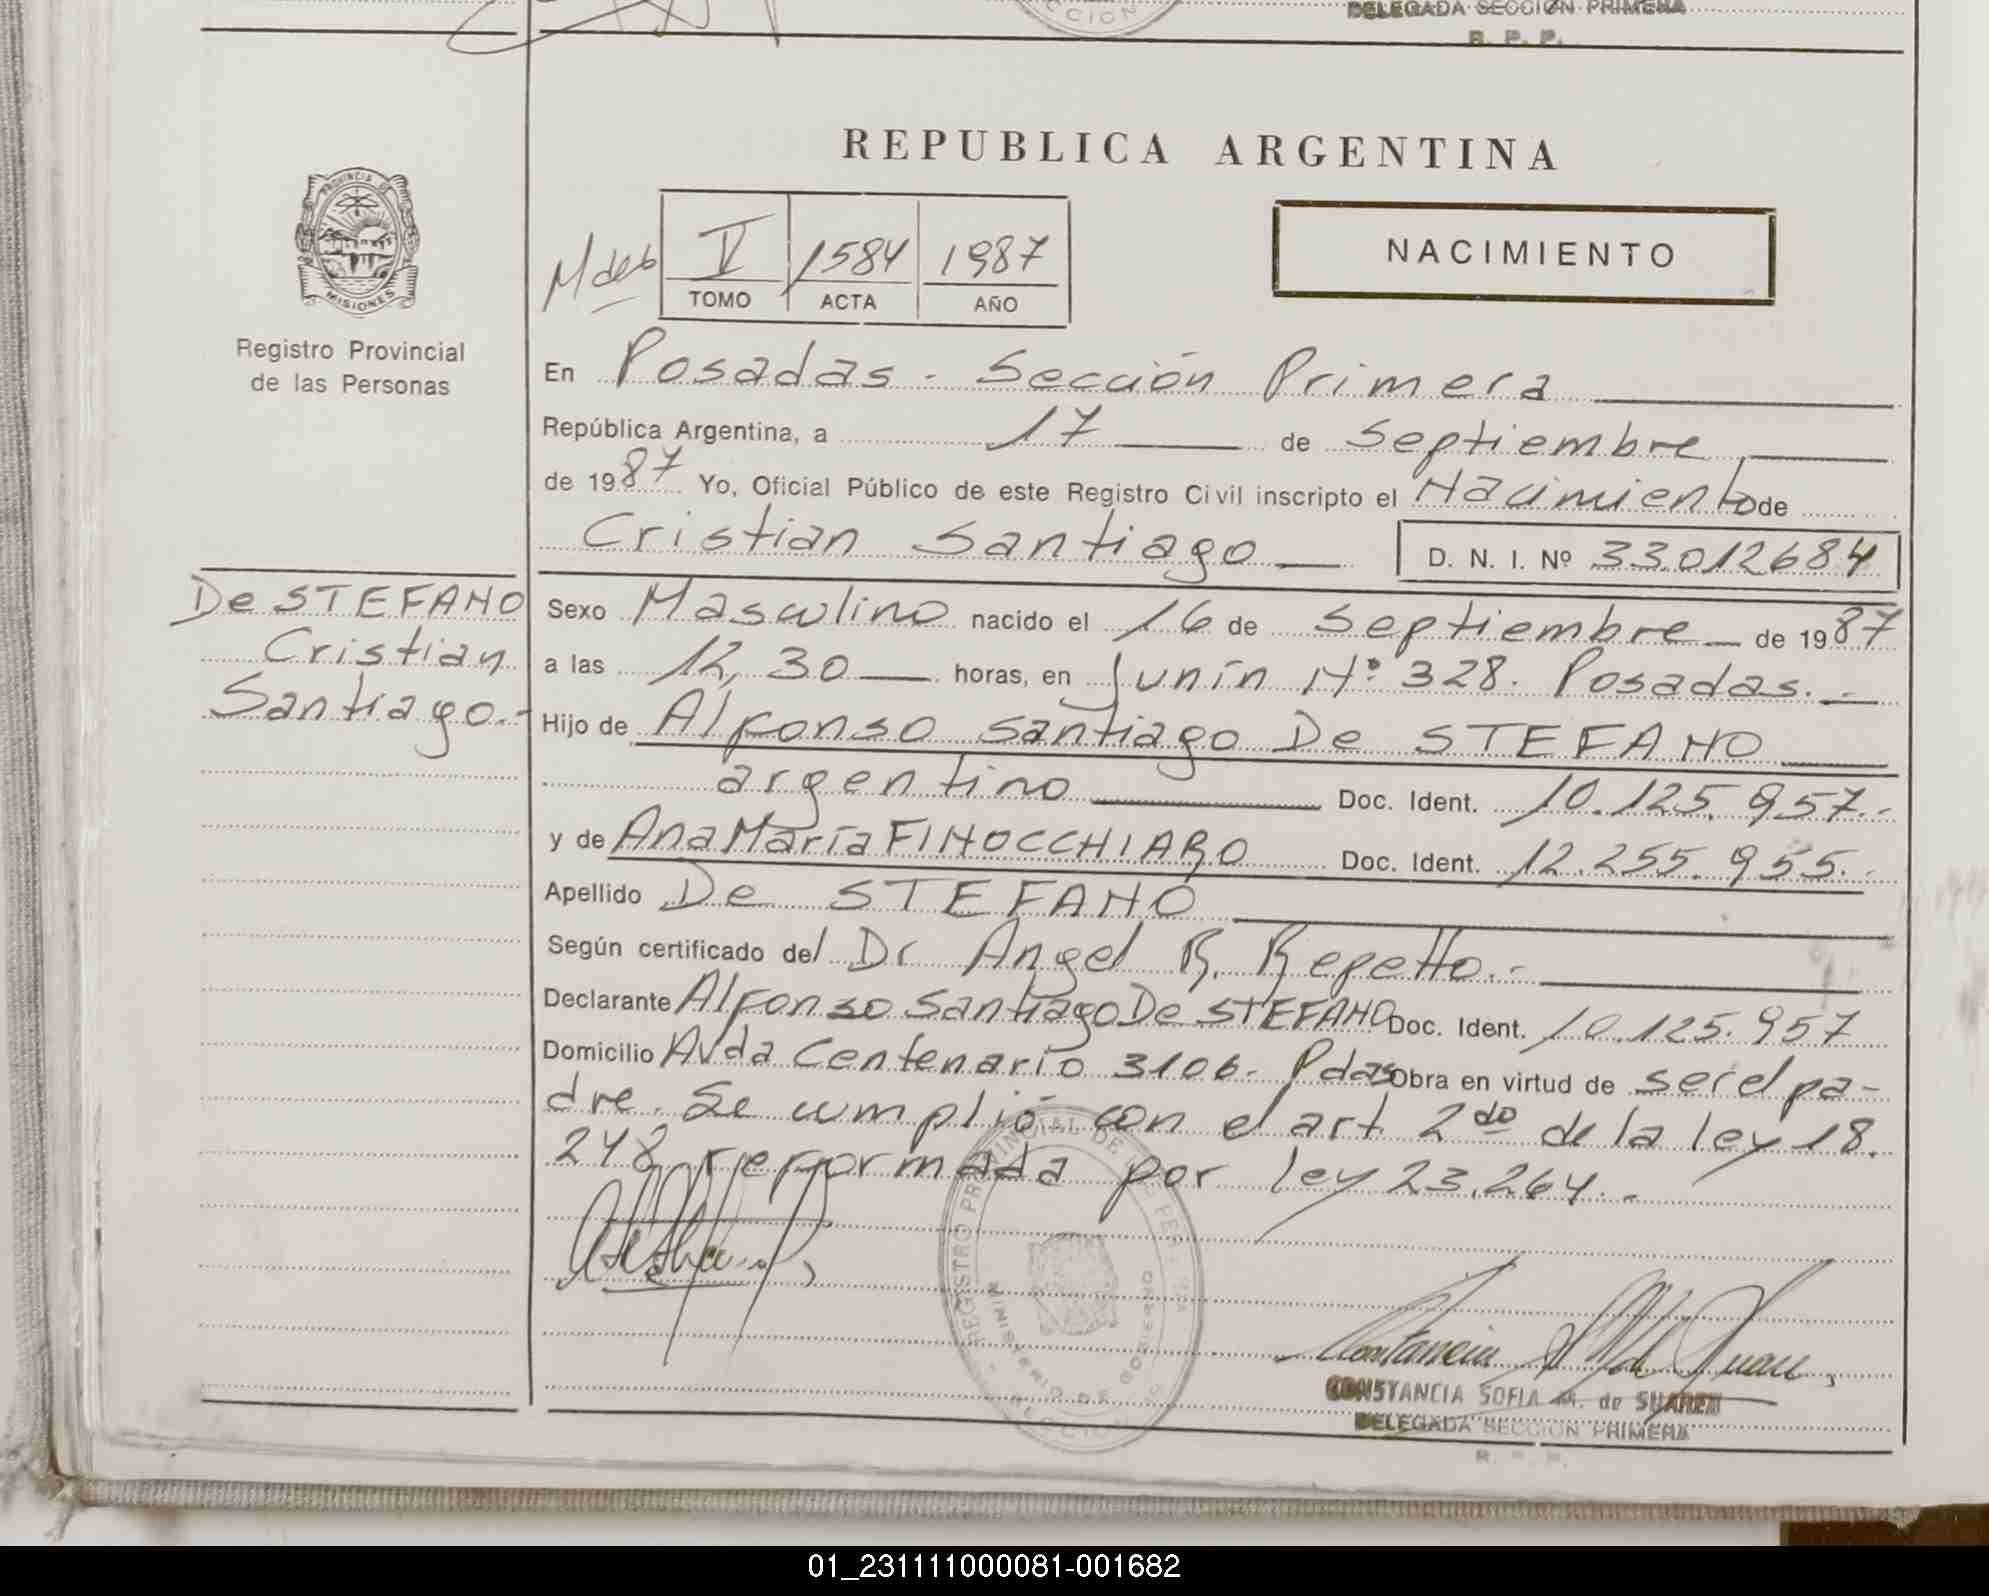 DELEGADA SECCIÓN PRIMERA
R. P. P.
REPUBLICA ARGENTINA
PROVINCIA DE
MISIONES
Registro Provincial
de las Personas
V 1584 1987
TOMO ACTA AÑO
NACIMIENTO
En Posadas - Sección Primera
República Argentina, a 17 de Septiembre
de 1987 Yo, Oficial Público de este Registro Civil inscripto el Nacimiento de
Cristian Santiago D. N. I. Nº 33.012684
De STEFANO
Cristian
Santiago.-
Sexo Masculino nacido el 16 de Septiembre de 1987
a las 12,30 horas, en Junín Nº 328. Posadas.-
Hijo de Alfonso Santiago De STEFANO
argentino Doc. Ident. 10.125.957.-
y de Ana María FINOCCHIARO Doc. Ident. 12.255.955.-
Apellido De STEFANO
Según certificado del Dr Angel R. Repetto.-
Declarante Alfonso Santiago De STEFANO Doc. Ident. 10.125.957
Domicilio Avda Centenario 3106. Pdas Obra en virtud de ser el pa-
dre. Se cumplió con el art 2do de la ley 18.
248 reformada por ley 23.264.-
REGISTRO PROVINCIAL DE
MINISTERIO DE GOBIERNO
CONSTANCIA SOFIA M. de SUAREZ
DELEGADA SECCION PRIMERA
R. P. P.
01_231111000081-001682